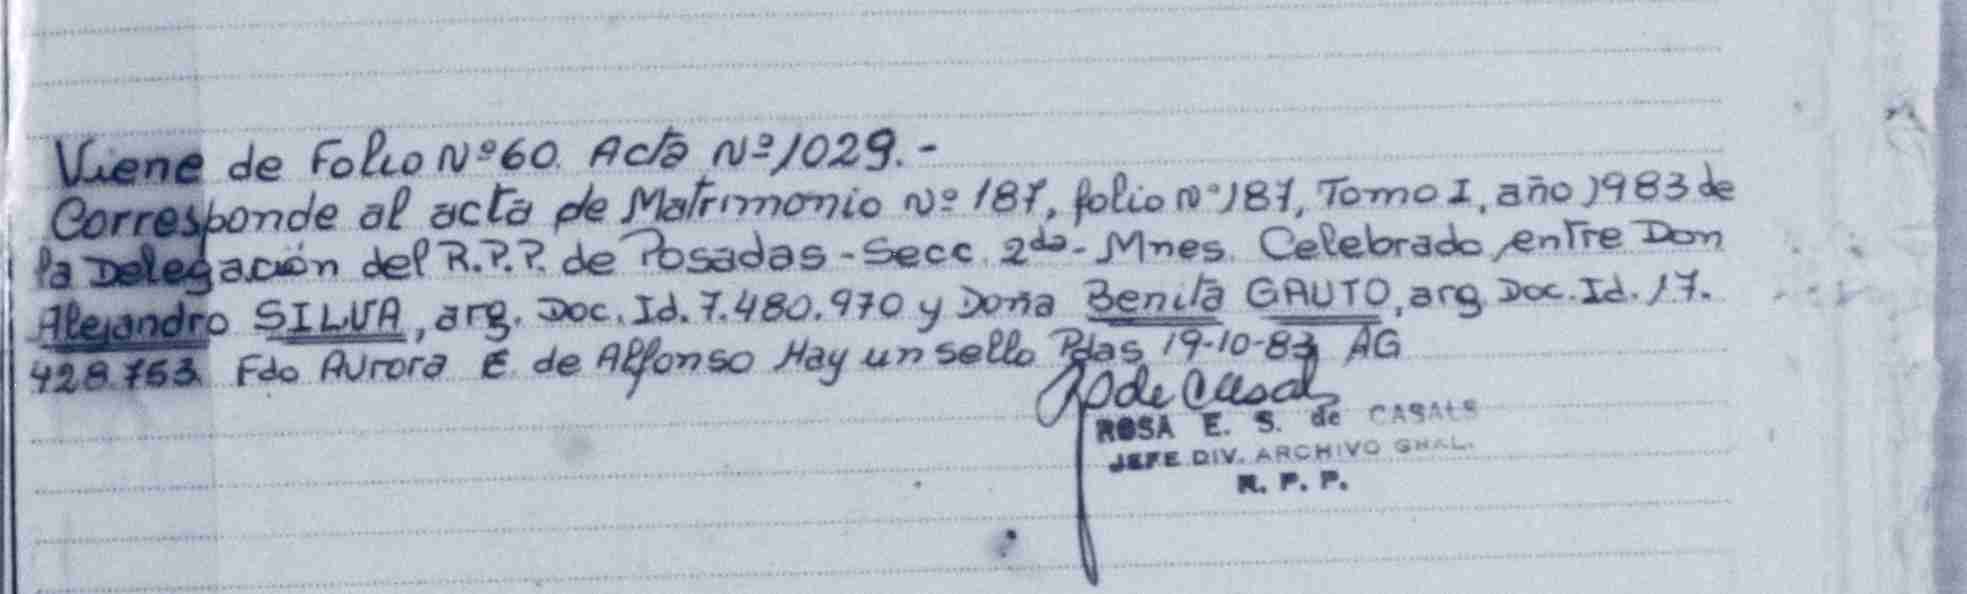 Viene de Folio Nº 60. Acta Nº 1029.-
Corresponde al acta de Matrimonio Nº 187, folio Nº 187, Tomo I, año 1983 de
la Delegación del R.P.P. de Posadas - Secc. 2da - Mnes. Celebrado entre Don
Alejandro SILVA, arg. Doc. Id. 7.480.970 y Doña Benita GAUTO, arg. Doc. Id. 17.
428.753. Fdo Aurora E. de Alfonso Hay un sello Pdas 19-10-83 AG
de Casals
ROSA E. S. de CASALS
JEFE DIV. ARCHIVO GRAL.
R. P. P.